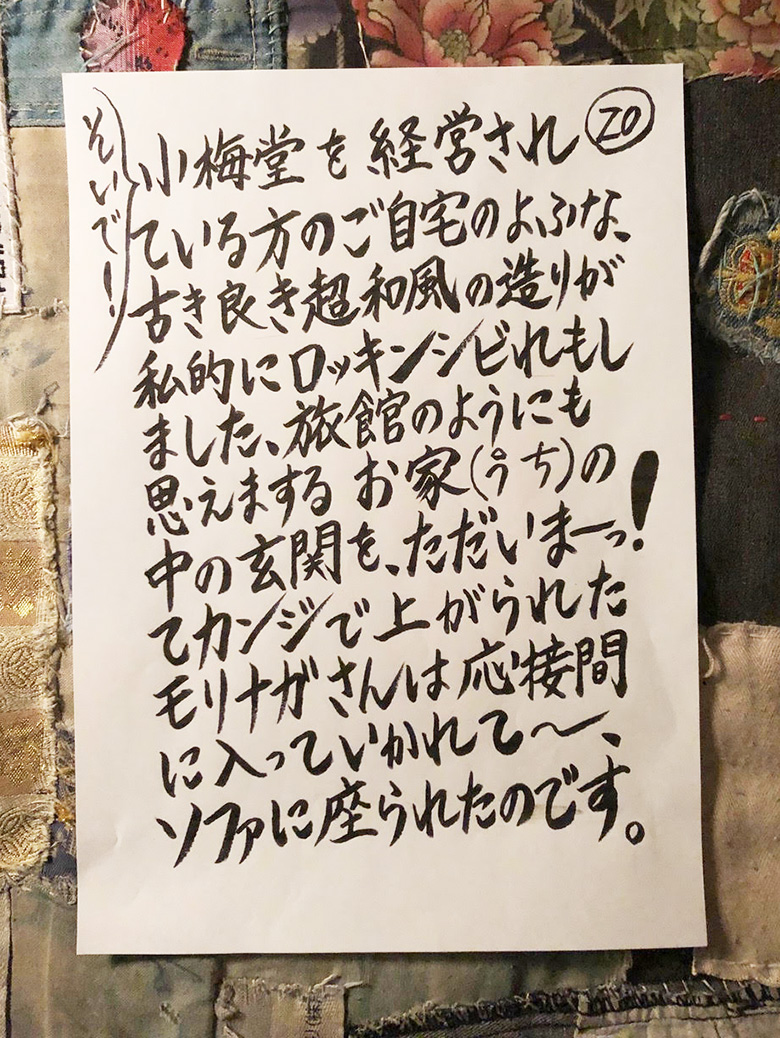 ⑳
そいでーっ
小梅堂を経営され
ている方のご自宅のよふな、
古き良き超和風の造りが
私的にロッキンシビれもし
ました、旅館のようにも
思えまするお家(うち)の
中の玄関を、ただいまーっ!
てカンジで上がられた
モリナガさんは応接間
に入っていかれて〜、
ソファに座られたのです。